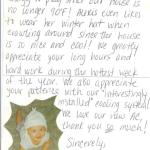 to play since our house is
no longer 90F! Alexis even likes
to wear her winter hat when
crawling around since the house
is so nice and cool! We greatly
appreciate your long hours and
hard work during the hottest week
of the year. We also appreciate
your patience with our "interestingly
installed" cooling system!
We love our new AC,
thank you so much!
Sincerely,